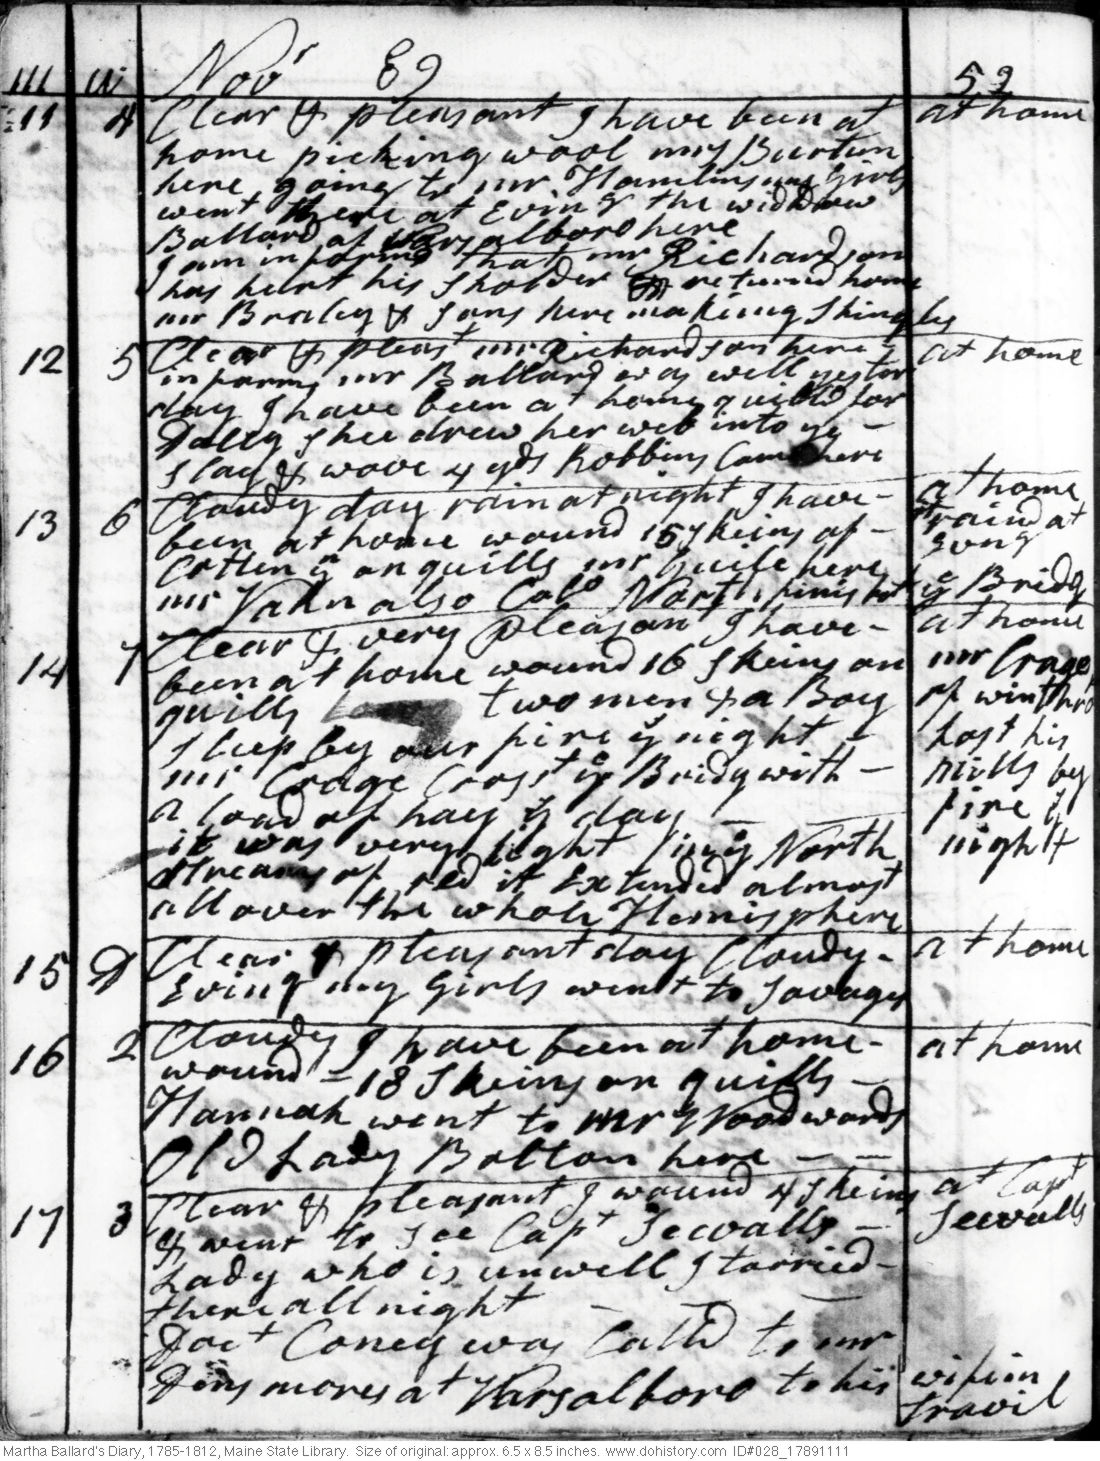 m w Novr 89 59
11 4 Clear & pleasant I have been at at home
home picking wool mrs Burtun
here, going to mr Hamlins my Girls
went there at Evinḡ the widdow
Ballard of Varsalboro here
I am informd that mr Richardson
has hurt his Sholder & returned home
mr Braley & Sons here making Shingles
12 5 Clear & pleast mr Richardson here at home
informs mr Ballard was well yester
day I have been at home quild for
Dolly Shee drew her web into ye
Slay & wove 4 yds Robbins Came here
13 6 Cloudy day rain at night I have at home
been at home wound 15 Skeins of raind at
Cotten &c on quills mr Guile here Evng
mr Vahn also Colo North finisht ye Bridg
14 7 Clear & very pleasant I have at home
been at home wound 16 Skeins on mr Crage
quills two men & a Boy of winthro
Sleep by our fire ye night lost his
mr Crage Crost ye Bridg with mills by
a load of hay ye day fire ys
it was very light in ye North night
Streams of red it Extended almost
all over the whole Hemisphere
15 D Clear & pleasant day Cloudy at home
Evinḡ my Girls went to Savages
16 2 Cloudy I have been at home at home
wound 18 Skeins on quills
Hannah went to mr Woodwards
Old Lady Bolton here
17 3 Clear & pleasant I wound 4 Skeins at Capt
& went to See Capt Sewalls Sewalls
Lady who is unwell I tarried
there all night
Doct Coney was Calld to mr
Dinsmores at Varsalboro to his wife in
travil
Martha Ballard's Diary, 1785-1812, Maine State Library. Size of original: approx. 6.5 x 8.5 inches. www.dohistory.com ID#028_17891111